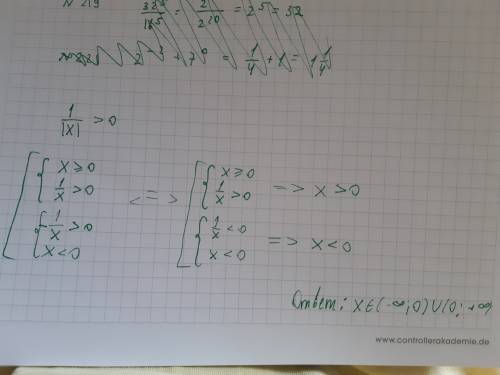 N 219 32⁵/16⁵ = 2/2²⁰ = 2⁵ = 32
2 + 7⁰ = 1/4 + 1 = 1 1/4
1/|x| > 0
x ≥ 0
1/x > 0
-1/x > 0
x < 0
<=>
x ≥ 0
1/x > 0
=> x > 0
1/x < 0
x < 0
=> x < 0
Ответ: x ∈ (-∞; 0) U (0; +∞)
www.controllerakademie.de